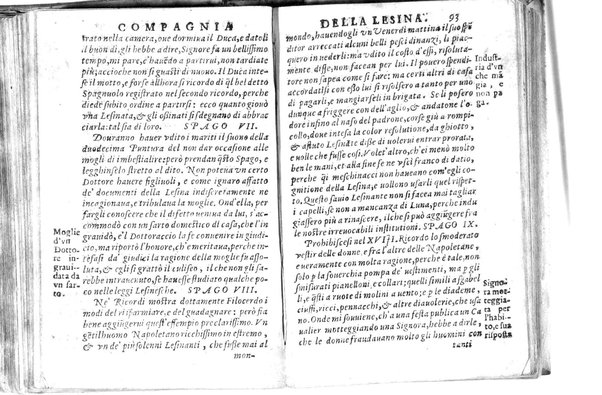 COMPAGNIA
trato nella camera, oue dormiua il Duca, e datoli
il buon dì, gli hebbe a dire, Signore fa un bellissimo
tempo, mi pare, c'habbiate a andarui, non tardiate
più, acciochè non si guasti di nuouo. Il Duca inte
se il motto, e forse allhora si ricordò di ql bel detto
Spagnuolo registrato nel secondo ricordo, perche
diede subito ordine a partirsi: ecco quanto giouò
vna Lesinata, e gli ostinati si degnano di abbrac
ciarla: tal sia di loro. SPAGO VII.
Douranno hauer uditto i mariti il suono della
duodecima Puntura del non dar occasione alle
mogli di imbestialire: però prendan qsto Spago, e
legghinselo stretto al dito. Non potena vn certo
Dottore hauere figliuoli, e come ignaro affatto
de' documenti della Lesina indiscretamente ne
incagionaua, e tribulaua la moglie. Ond'ella, per
fargli conoscere che il difetto ueniua da lui, s'ac-
commodò con vn sarto domestico di casa, che l'in
grauidò, et ella
ciò, ma riportò l'honore, ch'e meritaua, perche in-
fesasi da' giudici la ragion della moglie fu assol-
uta, & egli si grattò il culiseo, il che non gli sa-
rebbe intrauenuto, se hauesse studiato qualche po
co nelle leggi Lesinesche. SPAGO VIII.
Ne' Ricordi mostra dottamente Filocerdo i
modi del risparmiare, e del guadagnare: però fia
bene aggiungerui quest'essempio preclarissimo. Vn
gẽtilhuomo Napoletano ricchissimo in estremo,
& vn de' più solenni Lesinanti, che fusse mai al
mon-
Moglie
d'vn
Dotto-
re in-
graui-
data da
vn sar-
to.
DELLA LESINA. 93
mondo, hauendogli vn Venerdì mattina il suo spẽ
ditor arreccati alcuni pesci dinanzi, li piac-
quero in uederli: ma vdito il costo d'essi, risoluta-
mente disse, non faccian per lui. Il pouero spendi-
tore non sapea come si fare: ma certi altri di casa
accordatisi con esso lui si risolsero a tanto per uno
di pagarli, e mangiarseli in brigata. Se li posero
dunque a friggere con dell'aglio, & andatone l'o-
dore infino al naso del padrone, corse giù a rompi-
collo, doue intesa la color resolutione, da ghiotto,
& astuto Lesinãte disse di uolerui entrar prorata,
e uolle che fusse così. Volet'altro, ch'ei menò molto
ben le mani, et alla fine se ne vsci franco di datio,
perche qi meschinacci non haueano com'egli co-
gnitione della Lesina, e uollono usarli quel rispet-
to, Questo sauio Lesinante non si facea mai tagliar
i capelli, se non a mancanza di Luna, perche peg-
giassero più a rinascere, il che si può aggiũgere fra
le nostre irreuocabili institutioni. SPAGO IX.
Prohibiscesi nel XVIII. Ricordo lo smoderato
vestir delle donne, e fra l'altre delle Napoletane,
e ueramente con molta ragione, perche è tale, non
solo p la souerchia pompa de' uestimenti, ma p gli
smisurati pianelloni, e collari; quelli simili a sgabel
li, e qsti a ruote di molini a uento; e p le diademe,
ciuffi, ricci, pennacchi, & altre diauolerie, che usa
no. Onde mi souuiene, ch'a una festa publica un Ca
ualier motteggiando una Signora, hebbe a dirle,
che le donne fraudauano molti gli huomini con
tanti
Indust-
ria d'vn
che mã
gia, e
non pa-
ga.
Signo-
ra mot-
teggia-
ta per
l'habi-
to, e sua
risposta